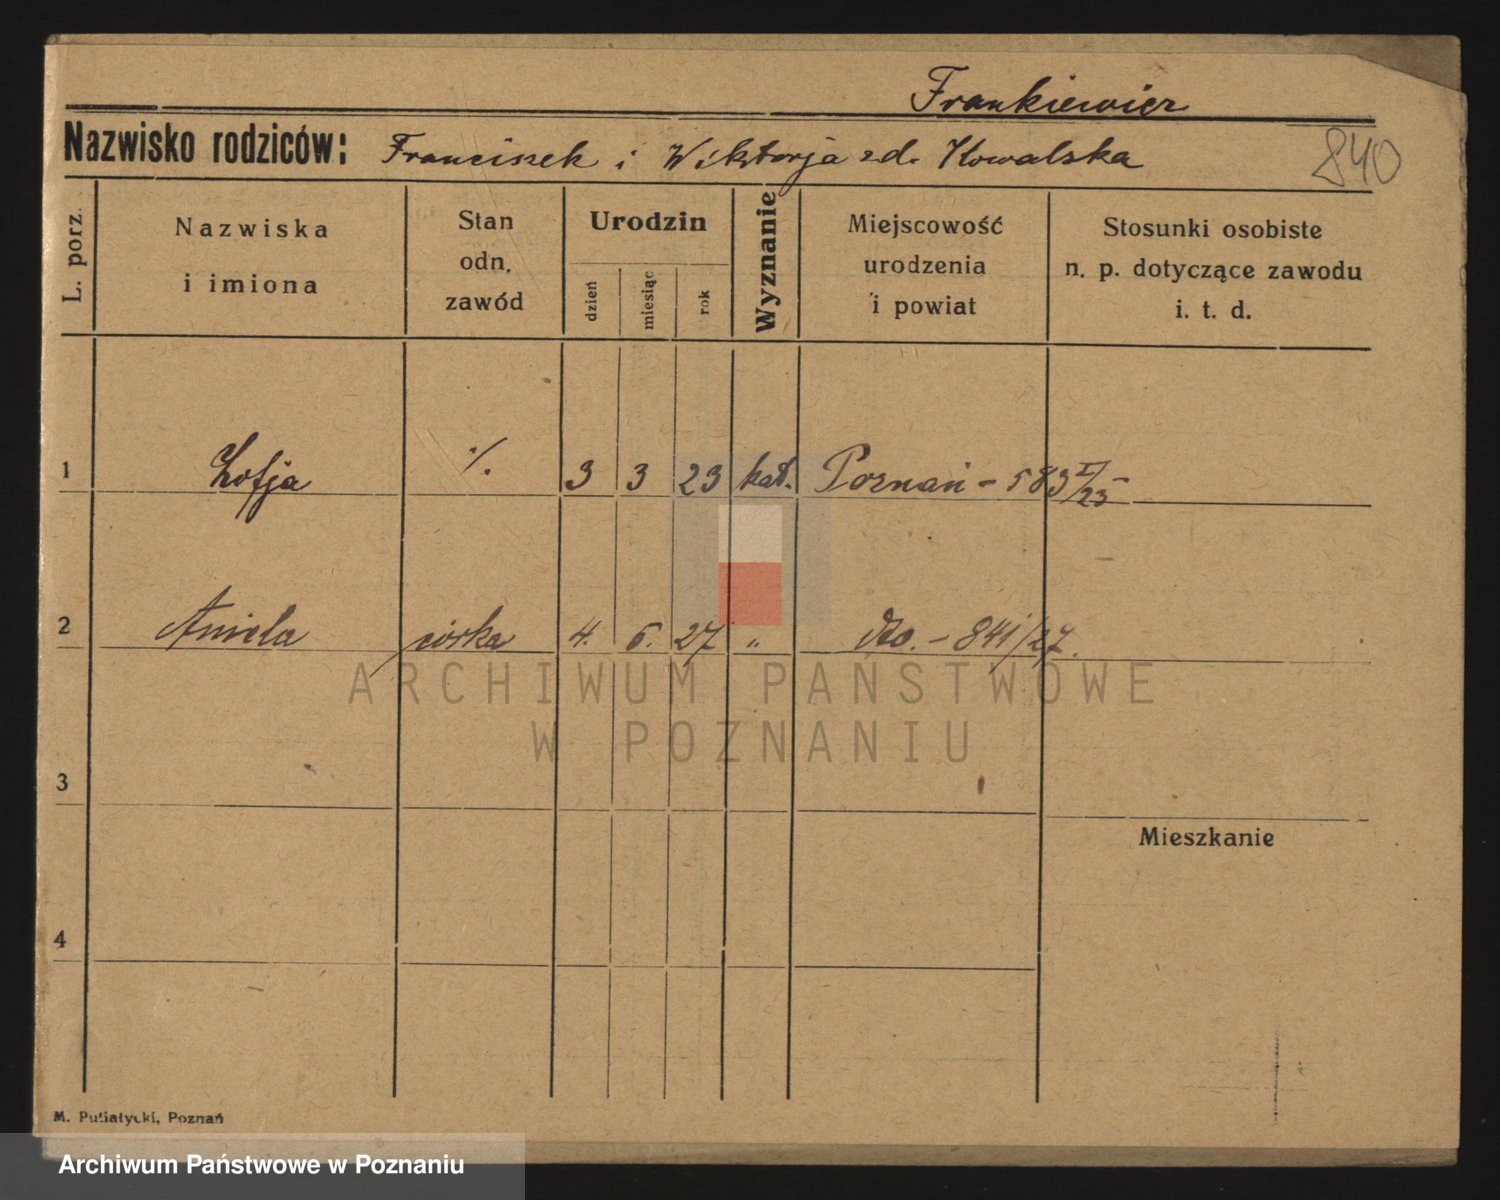 Frankiewicz
Nazwisko rodziców: Franciszek i Wiktorja zd. Kowalska
840
L. porz.
Nazwiska
i imiona
Stan
odn.
zawód
Urodzin
dzień
miesiąc
rok
Wyznanie
Miejscowość
urodzenia
i powiat
Stosunki osobiste
n. p. dotyczące zawodu
i. t. d.
1 Zofja ./. 3 3 23 kat. Poznań - 583 I/23 -
2 Aniela córka 4. 6. 27 " dto. - 841/27.
ARCHIWUM PAŃSTWOWE
W POZNANIU
3
Mieszkanie
4
M. Putiatycki, Poznań
Archiwum Państwowe w Poznaniu